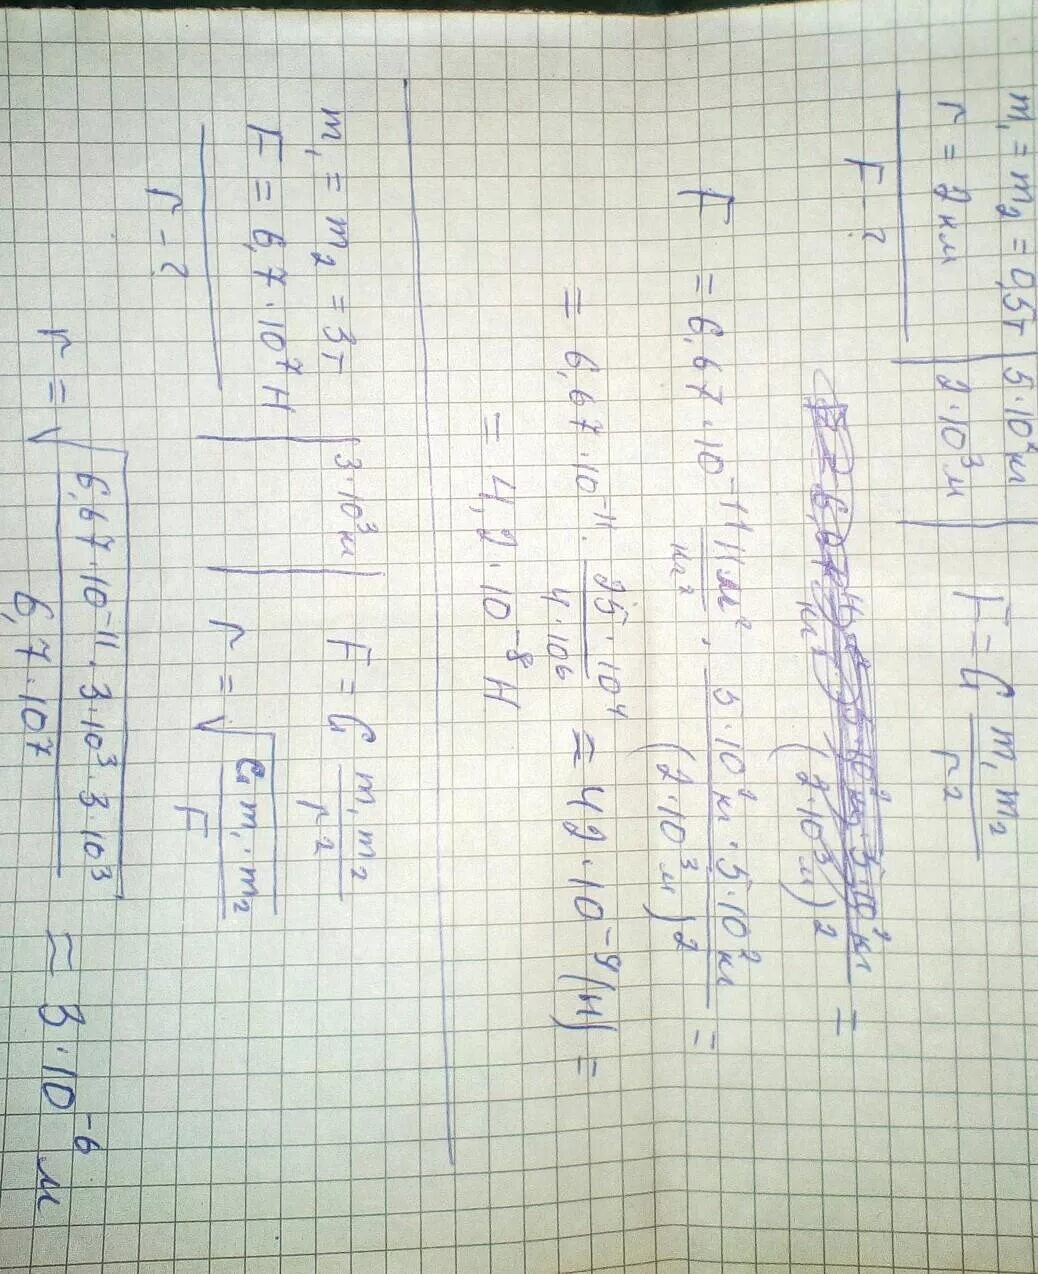 m₁ = m₂ = 0,5т | 5·10² кг | F = G m₁m₂/r²
r = 2 км | 2·10³ м
F - ?
(2·10³ м)² =
F = 6,67·10⁻¹¹ Н м²/кг² · 5·10² кг · 5·10² кг/(2·10³ м)² =
= 6,67·10⁻¹¹ · 25·10⁴/4·10⁶ ≈ 42·10⁻⁹ (Н) =
= 4,2·10⁻⁸ Н
m₁ = m₂ = 3т | 3·10³ кг | F = G m₁m₂/r²
F = 6,7·10⁷ Н
r = √(G m₁·m₂/F)
r - ?
r = √(6,67·10⁻¹¹·3·10³·3·10³/6,7·10⁷) ≈ 3·10⁻⁶ м